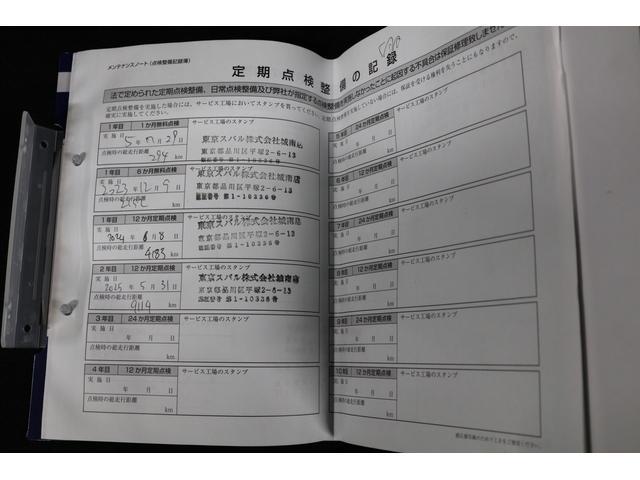 メンテナンスノート(点検整備記録簿)
定期点検整備の記録
法で定められた定期点検整備、日常点検整備及び弊社が指定する点検整備を実施しなかったことに起因する不具合は保証修理致しません
定期点検整備を実施した場合には、サービス工場においてスタンプを貰ってください。
確実に実施してください。
1年目 1か月無料点検 サービス工場のスタンプ
実施日 5年 7月 29日
点検時の総走行距離 294 km
東京スバル株式会社城南店
東京都品川区平塚2-6-13
1年目 6か月無料点検 サービス工場のスタンプ
実施日 2023年 12月 9日
点検時の総走行距離 km
東京スバル株式会社城南店
東京都品川区平塚2-6-13
第1-10336号
1年目 12か月定期点検 サービス工場のスタンプ
実施日 2024年 6月 8日
点検時の総走行距離 4183 km
東京スバル株式会社城南店
東京都品川区平塚2-6-13
第1-10336号
2年目 12か月定期点検 サービス工場のスタンプ
実施日 2025年 5月 31日
点検時の総走行距離 9114 km
東京スバル株式会社城南店
東京都品川区平塚2-6-13
第1-10336号
3年目 24か月定期点検 サービス工場のスタンプ
実施日
年 月 日
点検時の総走行距離
km
4年目 12か月定期点検 サービス工場のスタンプ
実施日
年 月 日
点検時の総走行距離
km
サービス工場のスタンプ
実施日
年 月 日
点検時の総走行距離
km
6年目 12か月定期点検 サービス工場のスタンプ
実施日
年 月 日
点検時の総走行距離
km
7年目 24か月定期点検 サービス工場のスタンプ
実施日
年 月 日
点検時の総走行距離
km
8年目 12か月定期点検 サービス工場のスタンプ
実施日
年 月 日
点検時の総走行距離
km
9年目 24か月定期点検 サービス工場のスタンプ
実施日
年 月 日
点検時の総走行距離
km
10年目 12か月定期点検 サービス工場のスタンプ
実施日
年 月 日
点検時の総走行距離
km